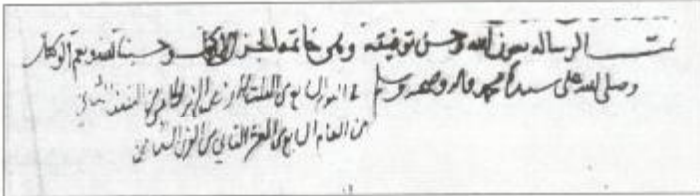 تمت الرساله بعون الله وحسن توفيقه وهي خاتمه الجزء وحسبنا الله ونعم الوكيل
وصلى الله على سيدنا محمد واله وصحبه وسلم اليوم السابع من الثلث من النصف الثاني
من العام الرابع من العشر الثاني من القرن الثامن